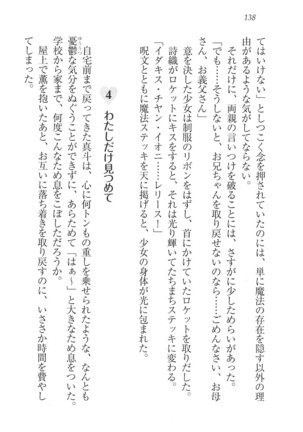 138
てはいけない」としつこく念を押されていたのには、単に魔法の存在を隠す以外の理
由があるような気がしてならない。
それだけに、両親の言いつけを破ることには、さすがに少しためらいがあった。
「でも……そうしないと、お兄ちゃんを取り戻せないのなら……ごめんなさい、お母
さん、お義父さん」
意を決した少女は制服のリボンをはずし、首にかけていたロケットを取りだした。
詩織がロケットにキスをすると、それは光り輝いてたちまちステッキに変わる。
「イダキス・チヤン・イオニ……レリース！」
呪文とともに魔法ステッキを天に掲げると、少女の身体が光に包まれた。
4 わたしだけ見つめて
自宅前まで戻ってきた真斗は、心に何トンもの重しを乗せられたような、なんとも
憂鬱な気分をぬぐうことができず、あらためて「はぁ～」と大きなため息をついた。
学校から家まで、何度こんなため息をこぼしただろうか。
屋上で薫を抱いたあと、お互いに落ち着きを取り戻すのに、いささか時間を費やし
てしまった。